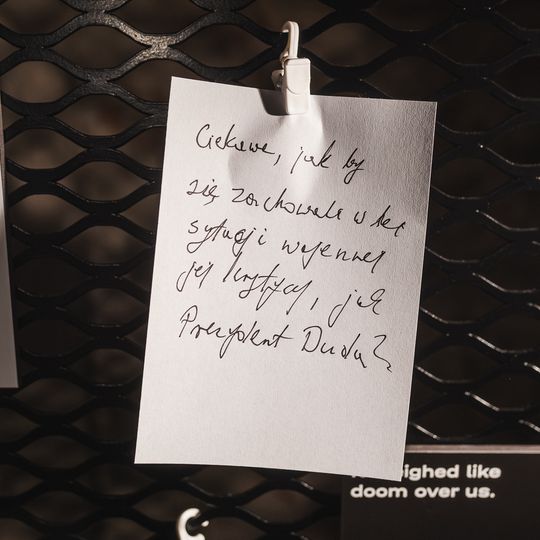 Ciekawe, jak by
się zachowali w tej
sytuacji wojennej
jej krytycy, jak
Prezydent Duda?
ighed like
doom over us.